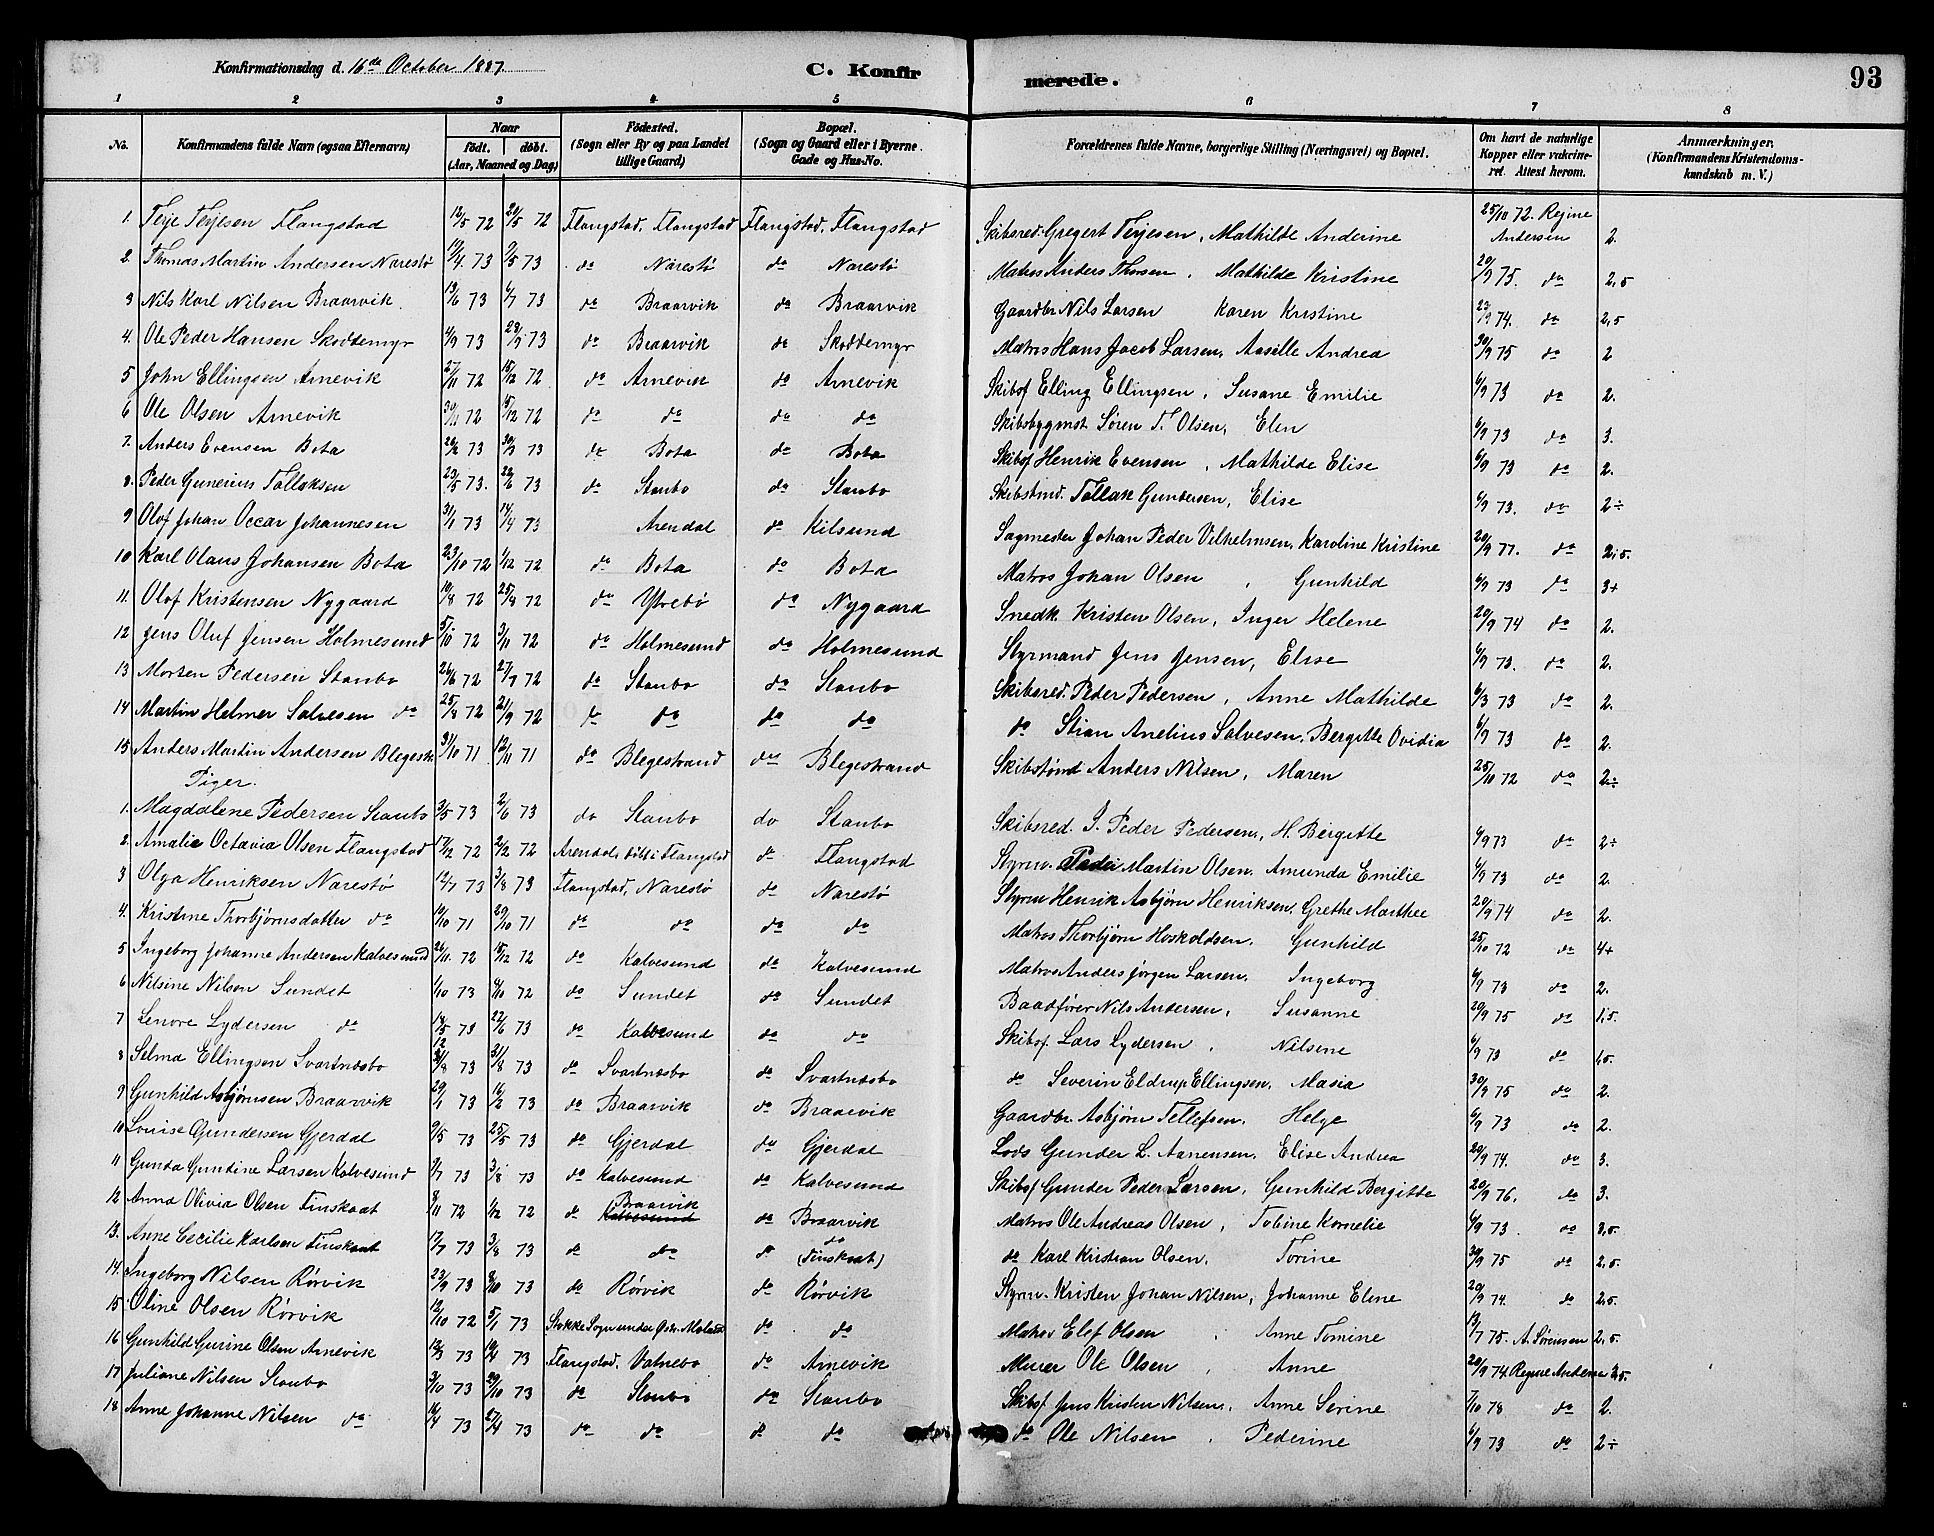 Konfirmationsdag d. 16de October 1887. C. Konfirmerede. 93
1 2 3 4 5 6 7 8
No. Konfirmandens fulde Navn (ogsaa Efternavn) Naar født. døbt. (Aar, Maaned og Dag) Fødested. (Sogn eller By og paa Landet tillige Gaard) Bopæl. (Sogn og Gaard eller i Byerne Gade og Hus-No. Forældrenes fulde Navne, borgerlige Stilling (Næringsvei) og Bopæl. Om havt de naturlige Kopper eller vakcineret. Attest herom. Anmærkninger. (Konfirmandens Kristendomskundskab m. V.)
1. Terje Terjesen Flangstad 12/5 72 20/5 72 Flangstad, Flangstad Flangstad, Flangstad Skibsred. Gregert Terjesen, Mathilde Anderine 25/10 72. Regine Andersen 2.
2. Thomas Martin Andersen Narestø 14/4 73 2/5 73 do Narestø do Narestø Matros Anders Thorsen, Mathilde Kristine 20/9 75. do 2,5
3 Nils Karl Nilsen Braarvik 13/6 73 6/7 73 do Braarvik do Braarvik Gaardbr Nils Larsen Karen Kristine 22/9 74. do 2,5
4. Ole Peder Hansen Skoddemyr 4/9 73 28/9 73 do Braarvik do Skoddemyr Matros Hans Jacob Larsen, Aasille Andrea 30/9 75 do 2
5 John Ellingsen Arnevik 27/11 72 15/12 72 do Arnevik do Arnevik Skibsf Elling Ellingsen, Susane Emilie 6/9 73 do 2.
6 Ole Olsen Arnevik 30/11 72 15/12 72 do do do do Skibsbygmst Søren T. Olsen, Elen 6/9 73 do 3.
7. Anders Evensen Bota 20/2 73 30/3 73 do Bota do Bota Skibsf Henrik Evensen, Mathilde Elise 6/9 73 do 2.
8. Peder Gunerius Tallaksen 23/5 73. 22/6 73 do Staubo do Staubo Skibstmd. Tallak Gundersen, Elise 6/9 73. do 2÷
9 Olof Johan Occar Johannesen 31/1 73 14/4 73 Arendal do Kilsund Sagmester Johan Peder Vilhelmsen, Karoline Kristine 20/9 77. do 2,5.
10 Karl Olaus Johansen Bota 23/10 72 1/12 72 do Bota do Bota Matros Johan Olsen, Gunhild 6/9 73 do 3+
11. Olof Kristensen Nygaard 10/8 72 25/8 72 do Ytrebø do Nygaard Snedk. Kristen Olsen, Inger Helene 20/9 74 do 2.
12 Jens Oluf Jensen Holmesund 5/10 72 3/11 72 do Holmesund do Holmesund Styrmand Jens Jensen, Elise 6/9 73. do 2.
13 Morten Pedersen Staubo 26/6 72 27/7 72 do Staubo do Staubo Skibsred. Peder Pedersen, Anne Mathilde 6/3 73 do 2.
14 Martin Helmer Salvesen do 25/8 72 21/9 72 do do do do do Stian Anelius Salvesen, Bergitte Ovidia 6/9 73 do 2.
15 Anders Martin Andersen Blegestr 31/10 71 12/11 71 do Blegestrand do Blegestrand Skibstømd Anders Nilsen, Maren 25/10 72 do 2÷
Piger.
1. Magdalene Pedersen Staubo 3/5 73 2/6 73 do Staubo do Staubo Skibsred. J. Peder Pedersen, H. Bergitte 6/9 73 do 2÷
2. Amalie Octavia Olsen Flangstad 17/2 72 2/2 72 Arendal, døbt i Flangstad do Flangstad Styrm. Peder Martin Olsen, Amunda Emilie 6/9 73 do 2.
3 Olga Henriksen Narestø 12/7 73 3/8 73 Flangstad, Narestø do Narestø Styrm Henrik Asbjørn Henriksen, Grethe Marthee 20/9 74 do 2.
4. Kristine Thorbjørnsdatter do 10/10 71 29/10 71 do do do do Matros Thorbjørn Hoskoldsen. Gunhild 25/10 72 do 4+
5 Ingeborg Johanne Andersen Kalvesund 26/11 72 15/12 72 do Kalvesund do Kalvesund Matros Anders Jørgen Larsen. Ingeborg 6/9 73 do 2.
6 Nilsine Nilsen Sundet 1/10 73 9/10 72 do Sundet do Sundet Baadfører Nils Andersen, Susanne 20/9 75 do 1,5.
7 Lenore Lydersen do 18/5 73 22/6 73 do Kalvesund do do Skibsf. Lars Lydersen, Nilsine 6/9 73 do 1,5.
8 Selma Ellingsen Svartnæsbo 12 3/8 73 31/8 73 do Svartnæsbo do Svartnæsbo do Severin Eldrup Ellingsen, Masia 30/9 75 do 2.
9 Gunhild Asbjørnsen Braarvik 29/1 73 16/2 73 do Braarvik do Braarvik Gaardbr. Asbjørn Tellefsen. Helge 6/9 73 do 2.
10 Louise Gundersen Gjerdal 9/5 73 25/5 73 do Gjerdal do Gjerdal Lods Gunder L. Aanensen. Elise Andrea 20/9 74. do 3.
11 Gunda Gundine Larsen Kalvesund 9/7 73 3/8 73 do Kalvesund do Kalvesund Skibsf Gunder Peder Larsen, Gunhild Bergitte 20/9 76. do 3.
12 Anna Olivia Olsen Finskaat 8/11 72 1/12 72 do Braarvik Kalvesund do Braarvik Matros Ole Andreas Olsen, Tobine Kornelie 6/9 73 do 2,5.
13. Anne Cecilie Karlsen Finskaat 17/7 73 3/8 73 do do do do (Finskaat) do Karl Kristian Olsen, Torine 30/9 75 do 2,5.
14. Ingeborg Nilsen Rørvik 23/9 73 8/10 73 do Rørvik do Rørvik Styrm. Kristen Johan Nilsen, Johanne Eline 20/9 74. do 2,5.
15. Oline Olsen Rørvik 12/10 72 5/1 73 Stokke Sogn under Østr. Moland do do Matros Elef Olsen, Anne Tomine 13/7 75. A. Sørensen 2,5.
16 Gunhild Gurine Olsen Arnevik 12/3 73 14/4 73 Flangstad, Vatnebo do Arnevik Murer Ole Olsen, Anne 20/9 74 Regine Andersen 2,5.
17 Juliane Nilsen Staubo 3/10 73 29/10 73 do Staubo do Staubo Skibsf Jens Kristen Nilsen, Anne Serine 7/10 78 do 2.
18 Anne Johanne Nilsen do 16/4 73 27/4 73 do do do do do Ole Nilsen, Pederine 6/9 73 do 2÷